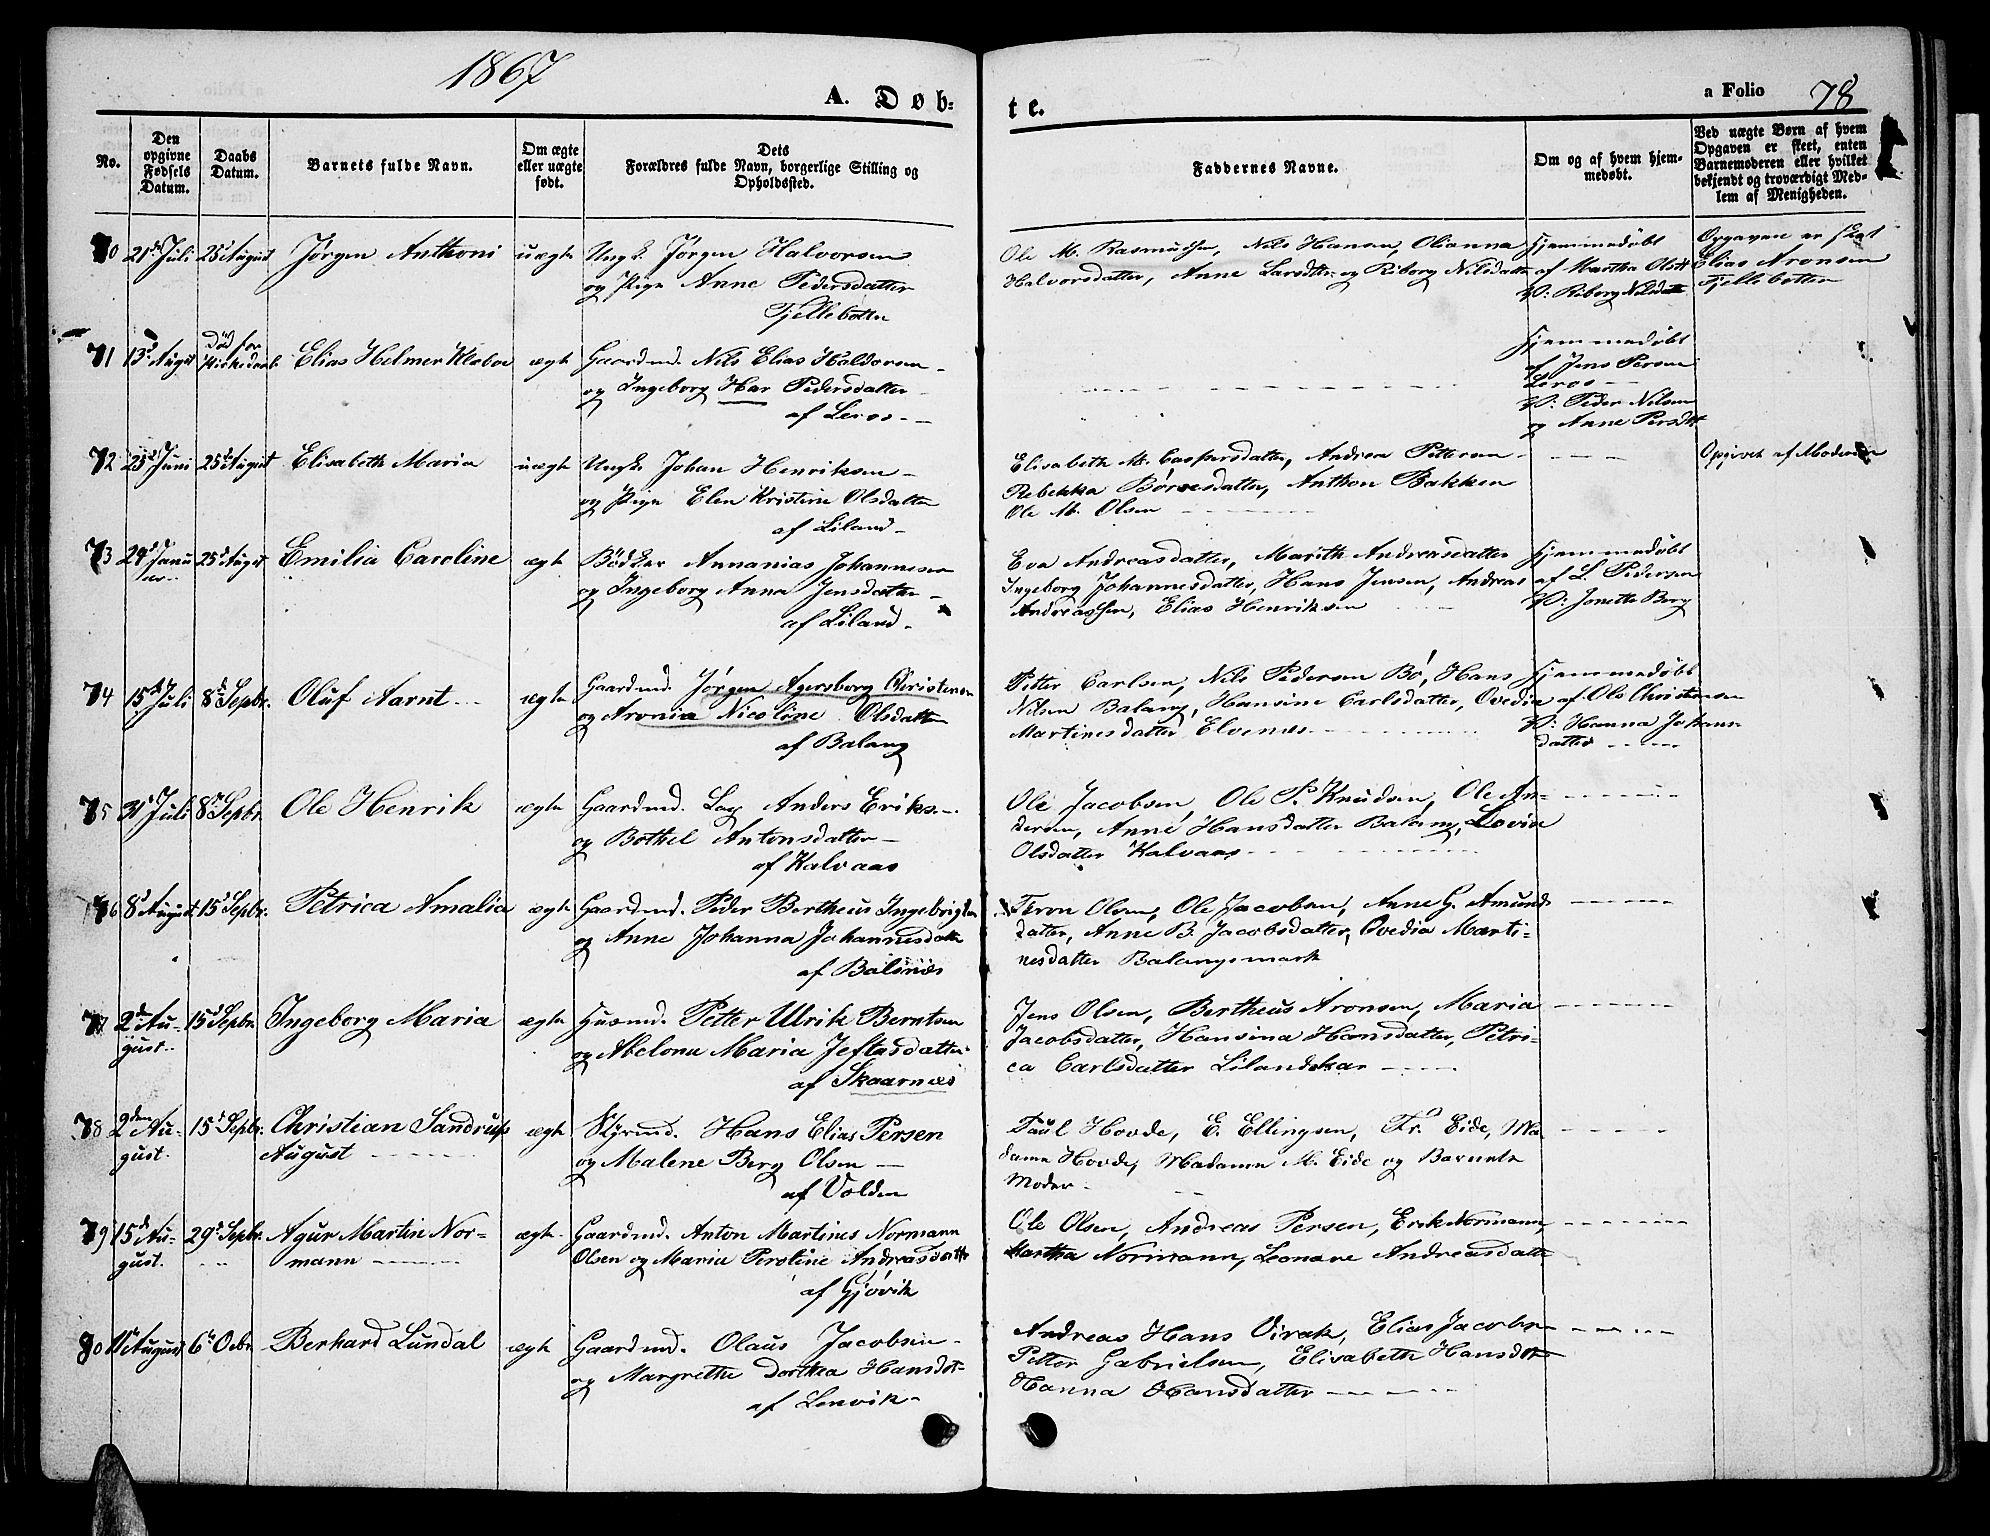 1867
A. Døb=
te.
a Folio 78
No.
Den opgivne Fødsels Datum.
Daabs Datum.
Barnets fulde Navn.
Om ægte eller uægte født.
Dets Forældres fulde Navn, borgerlige Stilling og Opholdssted.
Faddernes Navne.
Om og af hvem hjem-
medøbt.
Ved uægte Børn af hvem
Opgaven er skeet, enten
Barnemoderen eller hvilket
bekjendt og troværdigt Med-
lem af Menigheden.
70 21de Juli 25 August Jørgen Anthoni uægte Ungk. Jørgen Halvorsen
og Pige Anne Pedersdatter
Fjellebotten
Ole M. Rasmussen, Nils Hansen, Olianna
Halvorsdatter, Anne Larsdtr og Riborg Nilsdatter
Hjemmedøbt
af Martha Olsdtr
V: Riborg Nilsdatter
Opgaven er skeet
Elias Aronsen
Fjellebotten
71 13de August Død for Kirkedaab Elias Helmer Klaboe ægte Gaardmd. Nils Elias Haldorsen
og Ingeborg Har Pedersdatter
af Leros
Hjemmedøbt
af Jens Persen
Leros
V: Peder Nilsen
og Anne Persdtr
72 Juni 25de August Elisabeth Maria uægte Ungk. Johan Henriksen
og Pige Elen Kristine Olsdatter
af Liland
Elisabeth M. Caspersdatter, Andrea Pettersen
Rebekka Børresdatter, Anthon Bakken
Ole M. Olsen
Opgivet af Moderen
73 24d Janu
25d August Emilia Caroline ægte Bødker Annanias Johannesen
og Ingeborg Anna Jensdatter
af Liland
Eva Andreasdatter, Marith Andreasdatter
Ingeborg Johannesdatter, Hans Jensen, Andreas
Andreassen, Elias Henriksen
Hjemmedøbt
af L. Pedersen
V: Jonette Berg
74 15de Juli 8d Sepbr. Oluf Aarnt ægte Gaardmd. Jørgen Agersborg Christensen
og Aronia Nicoline Olsdatter
af Balang
Petter Carlsen, Nils Pedersen Bö, Hans
Nilsen Balang, Hansine Carlsdatter, Ovedia
Martinesdatter Elvenes
Hjemmedøbt
af Ole Christensen
V: Hanna Johans
datter
75 31 Juli 8de Sepbr. Ole Henrik ægte Gaardmd. Lay Anders Eriks.
og Bothel Antonsdatter
af Kalvaas
Ole Jacobsen, Ole P. Knudsen, Ole An=
dersen, Anne Hansdatter Balang, Lovise
Olsdatter Kalvaas
76 8d August 15d Sepbr. Petrica Amalia ægte Gaardmd. Peder Bertheus Ingebrigtsen
og Anne Johanna Johannesdatter
af Balsnes
Feron Olsen, Ole Jacobsen, Anne G. Amunds
datter, Anne B. Jacobsdatter, Ovedia Marti=
nesdatter Balangsmark
77 2den Au-
gust. 15d Sepbr. Ingeborg Maria ægte Husmd. Petter Ulrik Berntsen
og Abelona Maria Jeftasdatter
af Skaarnes
Jens Olsen, Bertheus Aronsen, Maria
Jacobsdatter, Hansina Hansdatter, Petri-
ca Carlsdatter Lilandskar
78 2den Au-
gust. 15d Sepbr. Christian Sandrup
August ægte Styrmd. Hans Elias Persen
og Malene Berg Olsen
af Volden
Paul Hovde, E. Ellingsen, Fr. Eide, Ma-
dame Hovde, Madame M. Eide og Barnets
Moder
79 15d Au-
gust. 29d Sepbr. Agur Martin Nor=
mann ægte Gaardmd. Anton Martines Normann
Olsen og Maria Peroline Andreasdatter
af Gjøvik
Ole Olsen, Andreas Persen, Erik Normann,
Martha Normann, Leonare Andreasdatter
80 11te August 6te Octbr Berhard Lundal ægte Gaardmd. Olaus Jacobsen
og Margrethe Dorthea Hansdtr
af Lenvik
Andreas Hans Virak, Elias Jacobsen
Petter Gabrielsen, Elisabeth Hansdtr
Hanna Hansdatter